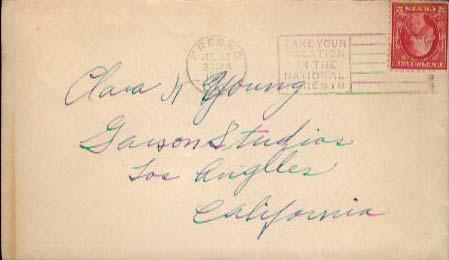 FRESNO
TAKE YOUR
VACATION
IN THE
NATIONAL
FORESTS
Clara K Young
Garson Studios
Los Angeles
California